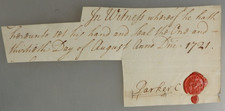 In Witness whereof he hath
hereunto set his hand and Seal the One and
thirtieth Day of August Anno Dni: 1721.